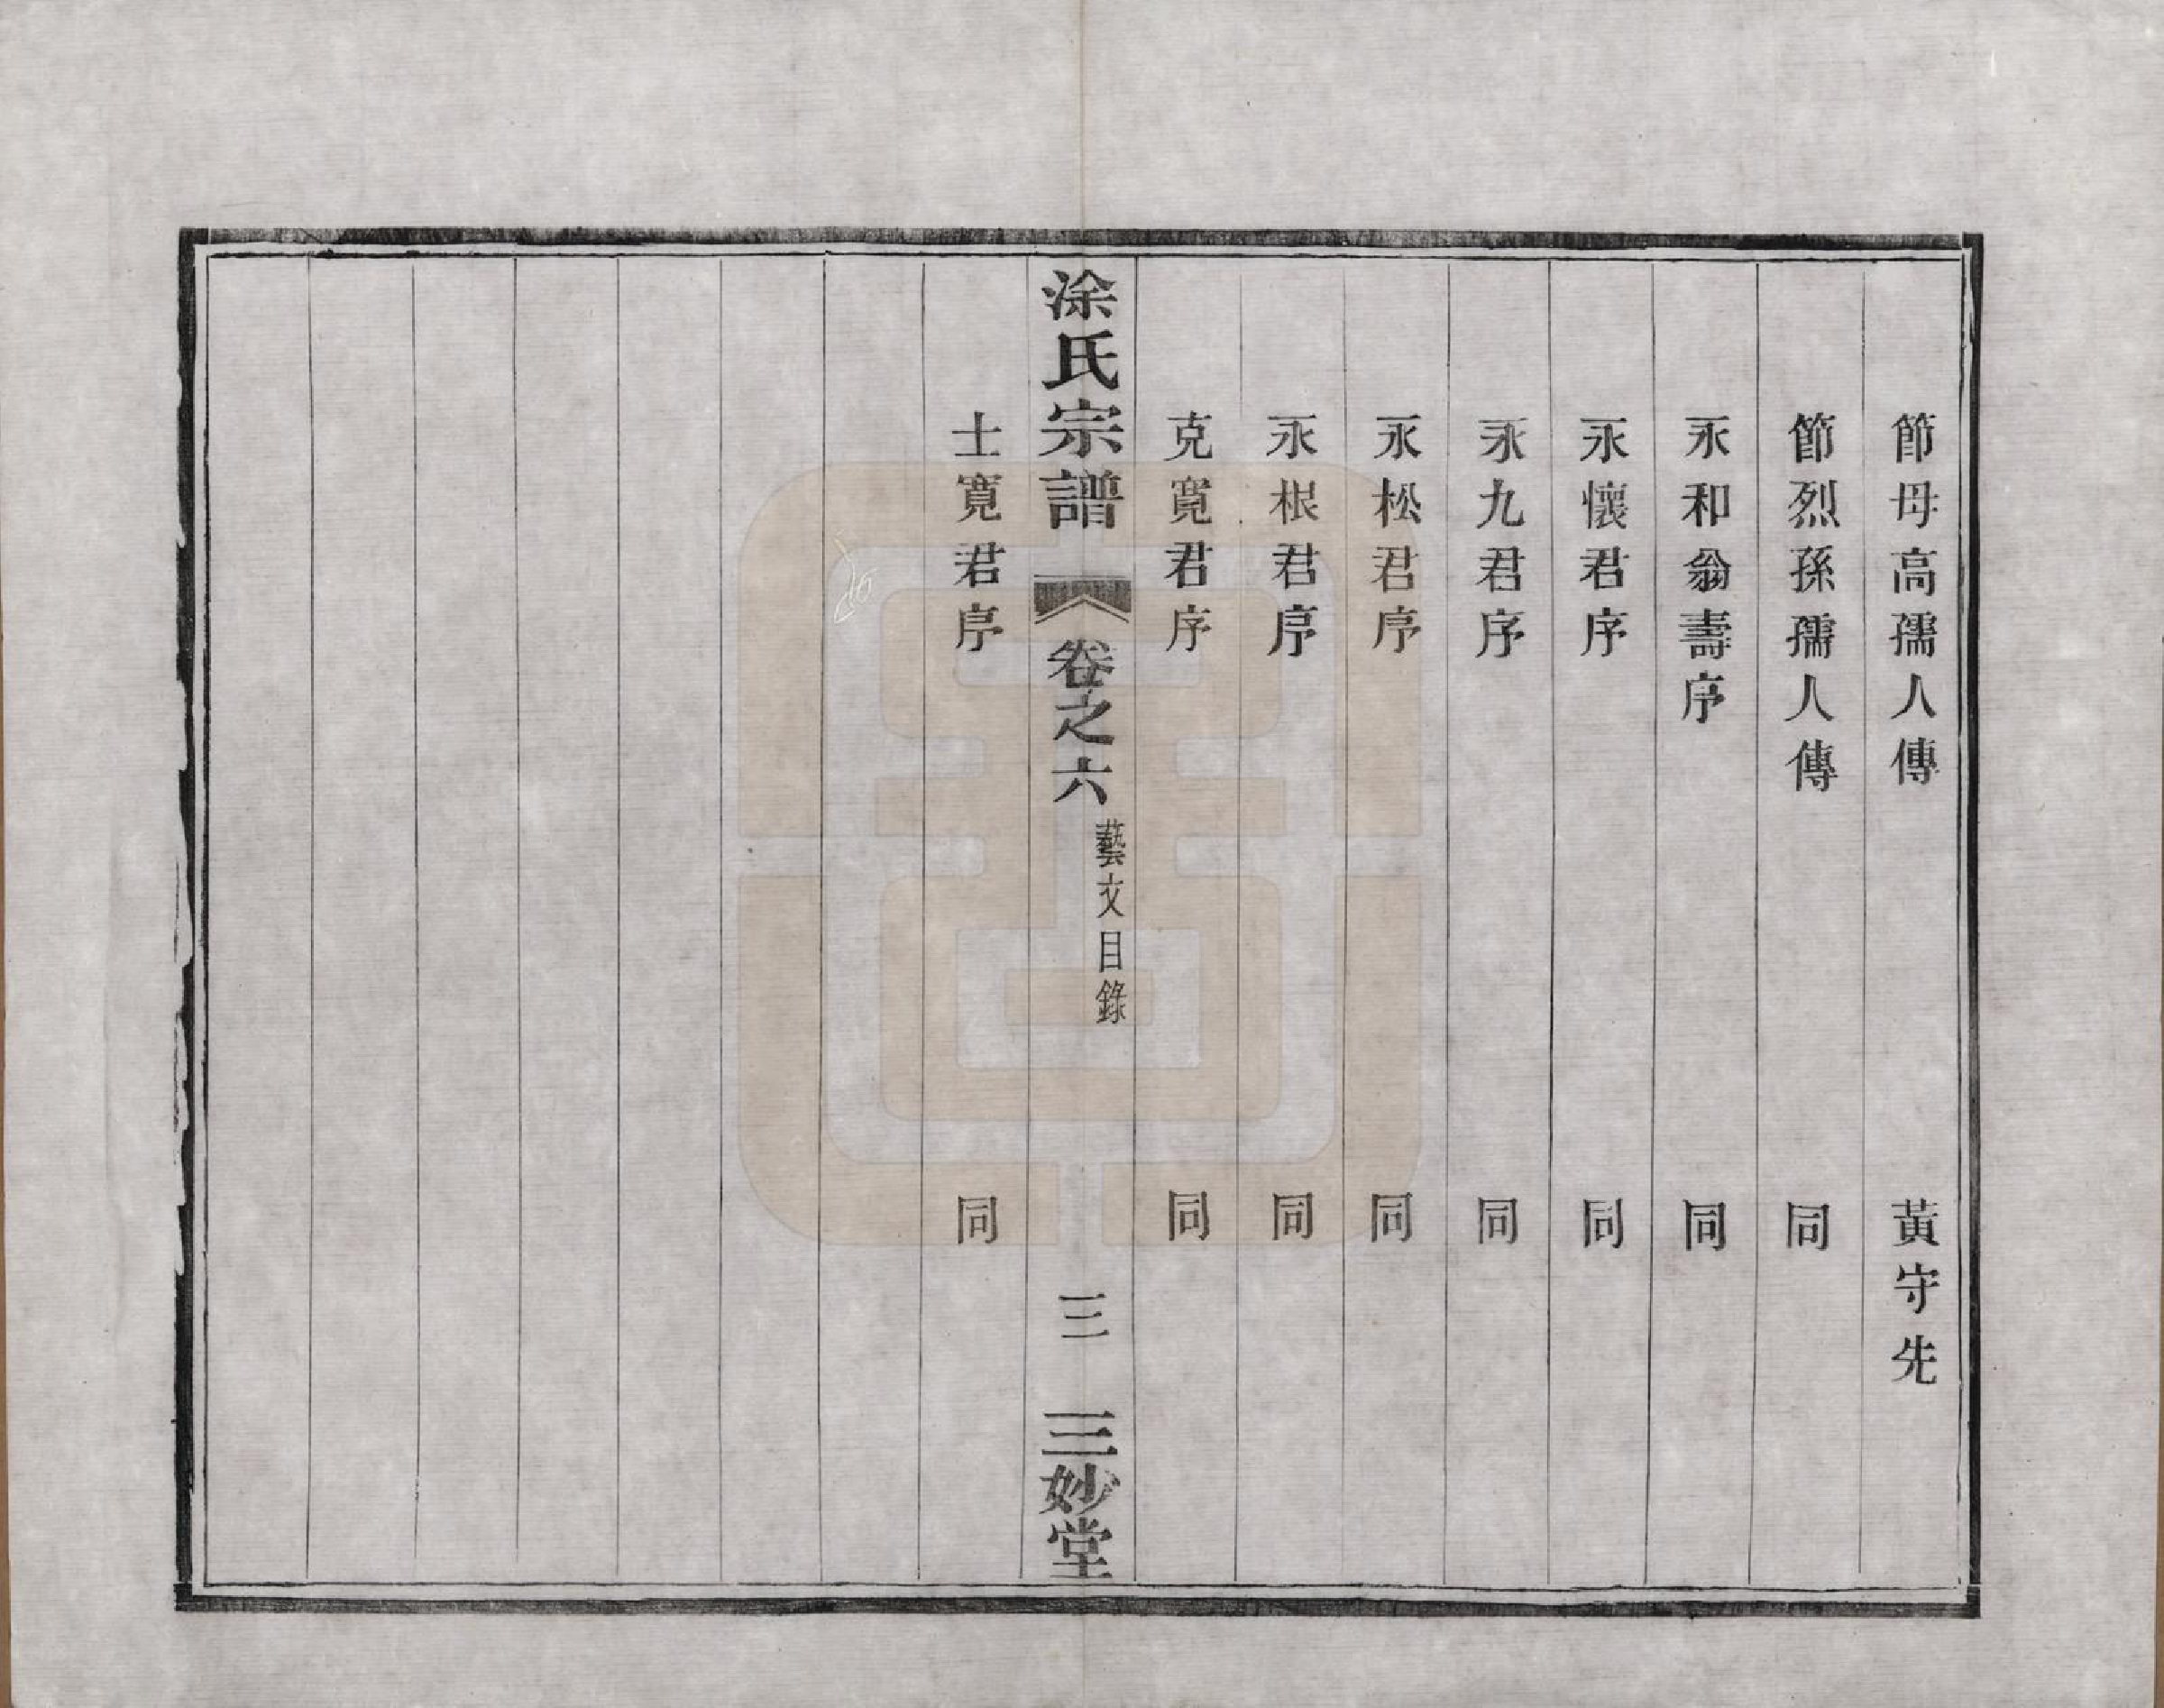 節母高孺人傳　黃守先
節烈孫孺人傳　同
永和翁壽序　同
永懷君序　同
永九君序　同
永松君序　同
永根君序　同
克寬君序　同
涂氏宗譜　卷之六　藝文目錄　三　三妙堂
士寬君序　同